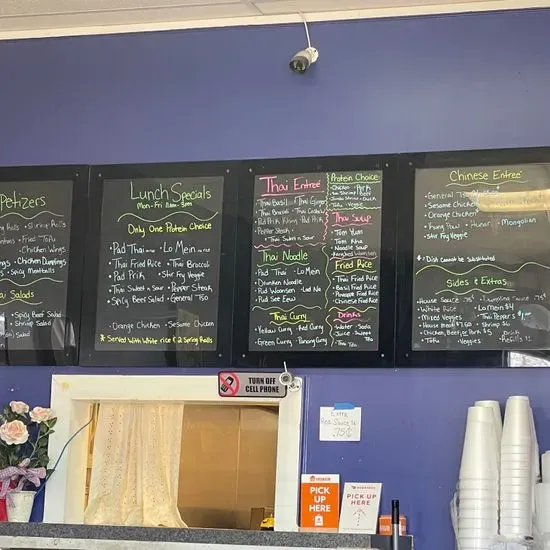 petizers
Shrimp Rolls
Fried Tofu
Chicken Wings
Chicken Dumplings
Spicy Meatballs
Salads
Spicy Beef Salad
Shrimp Salad
Lunch Specials
Mon-Fri 11am-3pm
Only One Protein Choice
• Pad Thai • Lo Mein
• Thai Fried Rice • Thai Broccoli
• Pad Prik • Stir Fry Veggie
• Thai Sweet n Sour • Pepper Steak
• Spicy Beef Salad • General Tso
• Orange Chicken • Sesame Chicken
* Served With White rice & 2 Spring Rolls
Thai Entreé
• Thai Basil • Thai Ginger
• Thai Broccoli • Thai Cashew
• Pad Prik King • Pad Prik
• Pepper Steak
• Thai Sweet n Sour
Thai Noodle
• Pad Thai • Lo Mein
• Drunken Noodle
• Pad Woonsen • Lad Na
• Pad See Eew
Thai Curry
• Yellow Curry • Red Curry
• Green Curry • Panang Curry
Protein Choice
• Chicken • Pork
• Shrimp • Beef
• Duck
• Tofu • Veggie
Thai Soup
• Tom Yum
• Tom Kha
• Noodle Soup
Fried Rice
• Thai Fried Rice
• Basil Fried Rice
• Pineapple Fried Rice
• Chinese Fried Rice
Drinks
• Water • Soda
• Juice • Sweet
• Thai Tea
Chinese Entreé
• General Tso
• Sesame Chicken
• Orange Chicken
• Kung Pow • Hunan • Mongolian
• Stir Fry Veggie
* Dish Cannot be Substituted
Sides & Extras
• House Sauce .75¢ • Dumpling Sauce .75¢
• White Rice • Lo Mein $4
• Mixed Veggies • Thai Peppers
• House Meat • Shrimp
• Chicken, Beef, or Pork $5
• Tofu • Veggies
Drink
Refills $1
TURN OFF
CELL PHONE
Extra
Red Sauce is
.75¢
PICK
UP
HERE
PICK UP
HERE